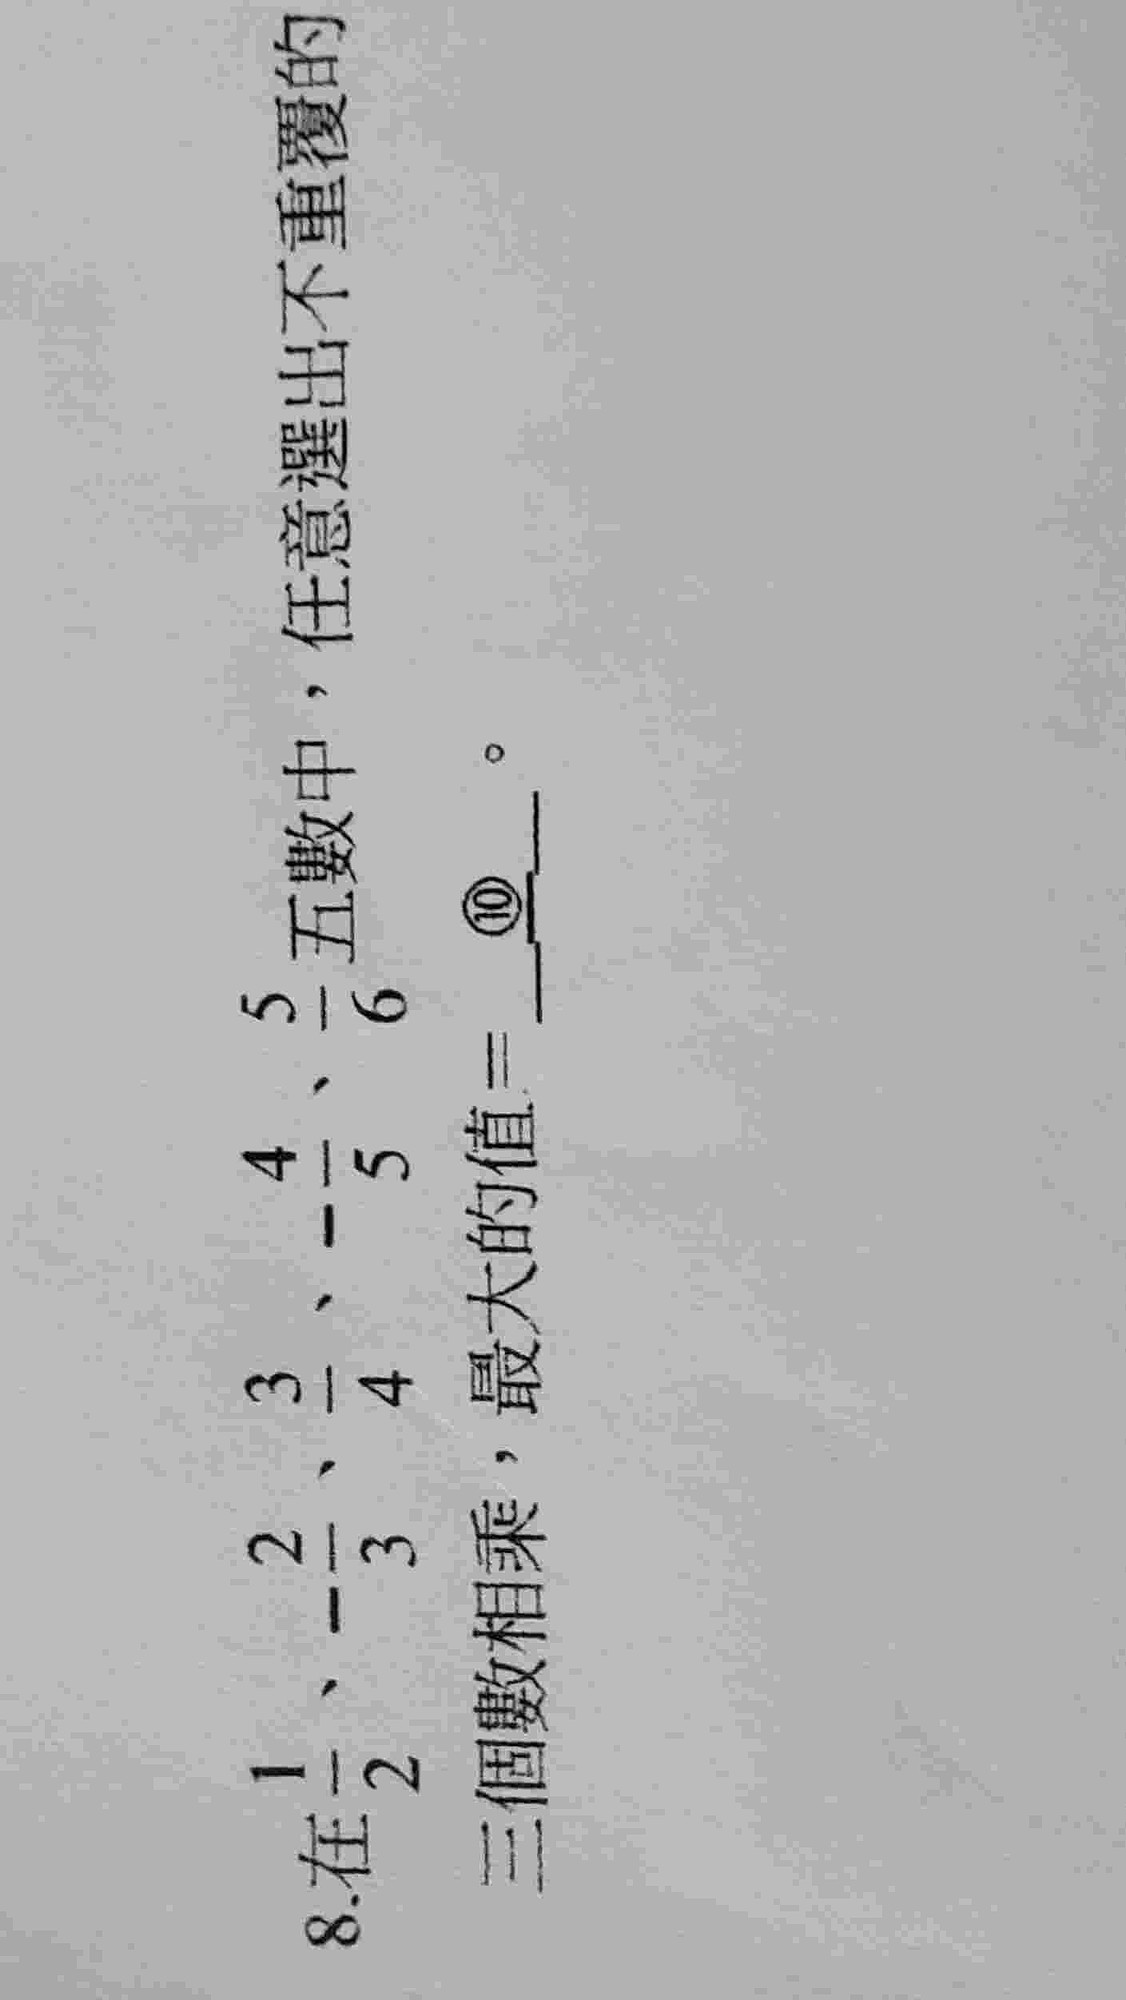 8.在1/2、-2/3、3/4、-4/5、5/6五數中，任意選出不重覆的
三個數相乘，最大的值=＿⑩＿。